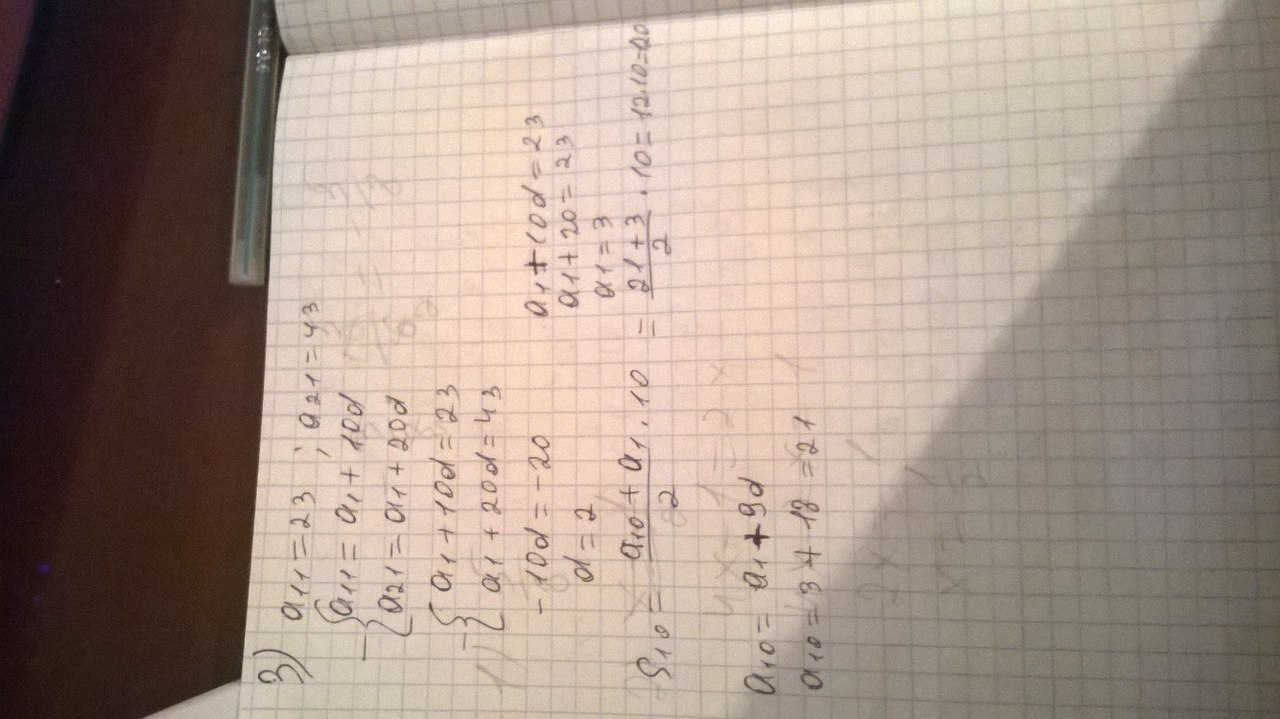 3) a11 = 23 ; a21 = 43
{ a11 = a1 + 10d
- { a21 = a1 + 20d
{ a1 + 10d = 23
- { a1 + 20d = 43
-10d = -20
d = 2
a1 + 10d = 23
a1 + 20 = 23
a1 = 3
S10 = (a10 + a1)/2 · 10 = (21 + 3)/2 · 10 = 12·10 = 120
a10 = a1 + 9d
a10 = 3 + 18 = 21